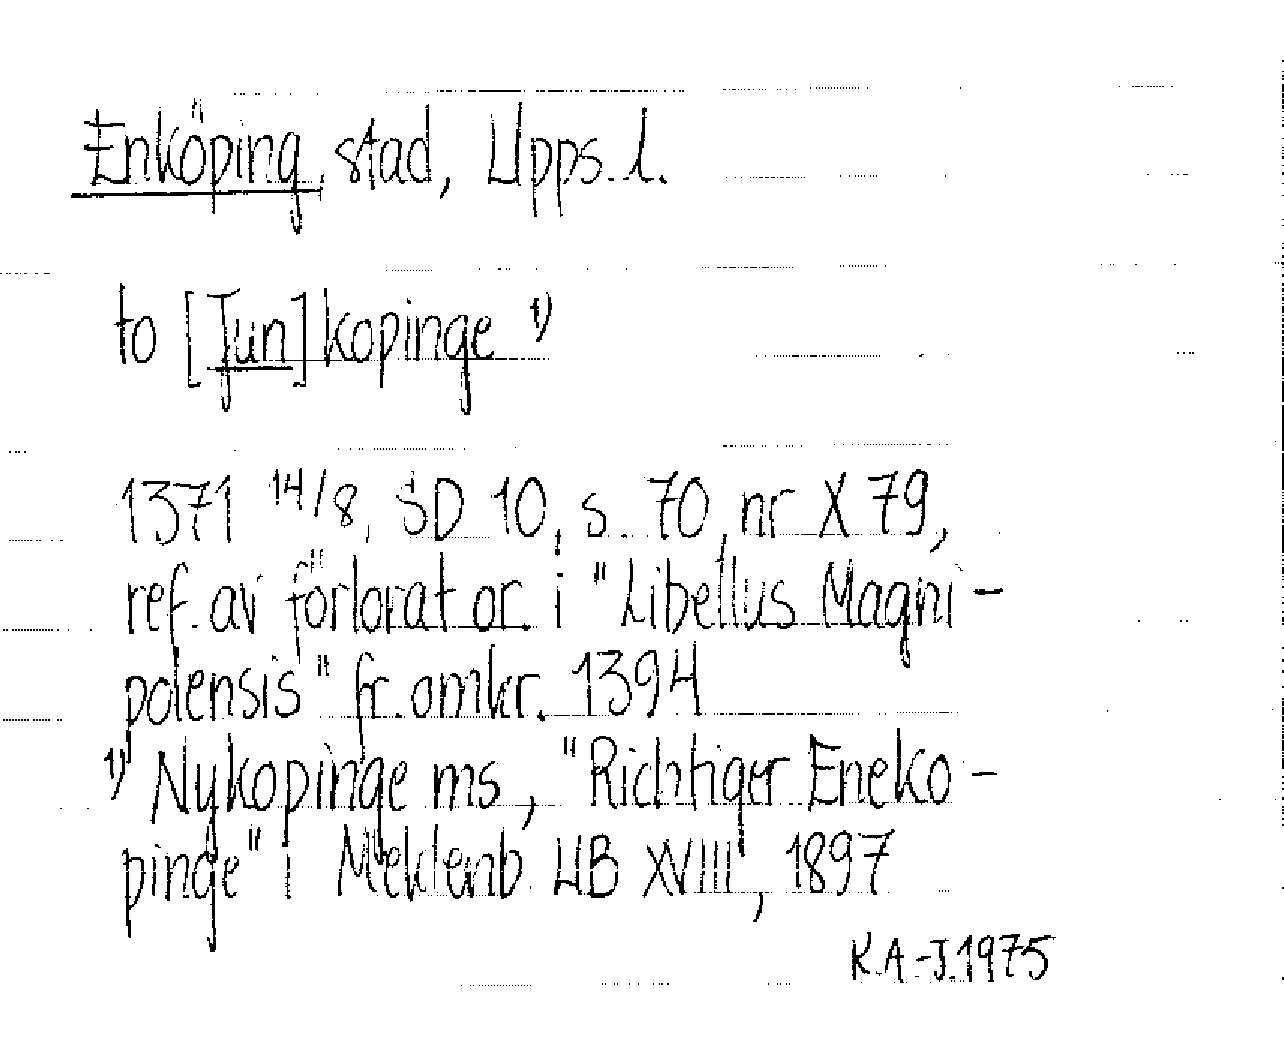 Enköping, stad, Upps. l.
to [Jun]kopinge 1)
1371 14/8, SD 10, s. 70, nr X 79,
ref. av förlorat or. i "Libellus Magni-
polensis" fr. omkr. 1394
1) Nykopinge ms, "Richtiger Eneko-
pinge" i Meklenb. UB XVIII, 1897
K.A-J. 1975